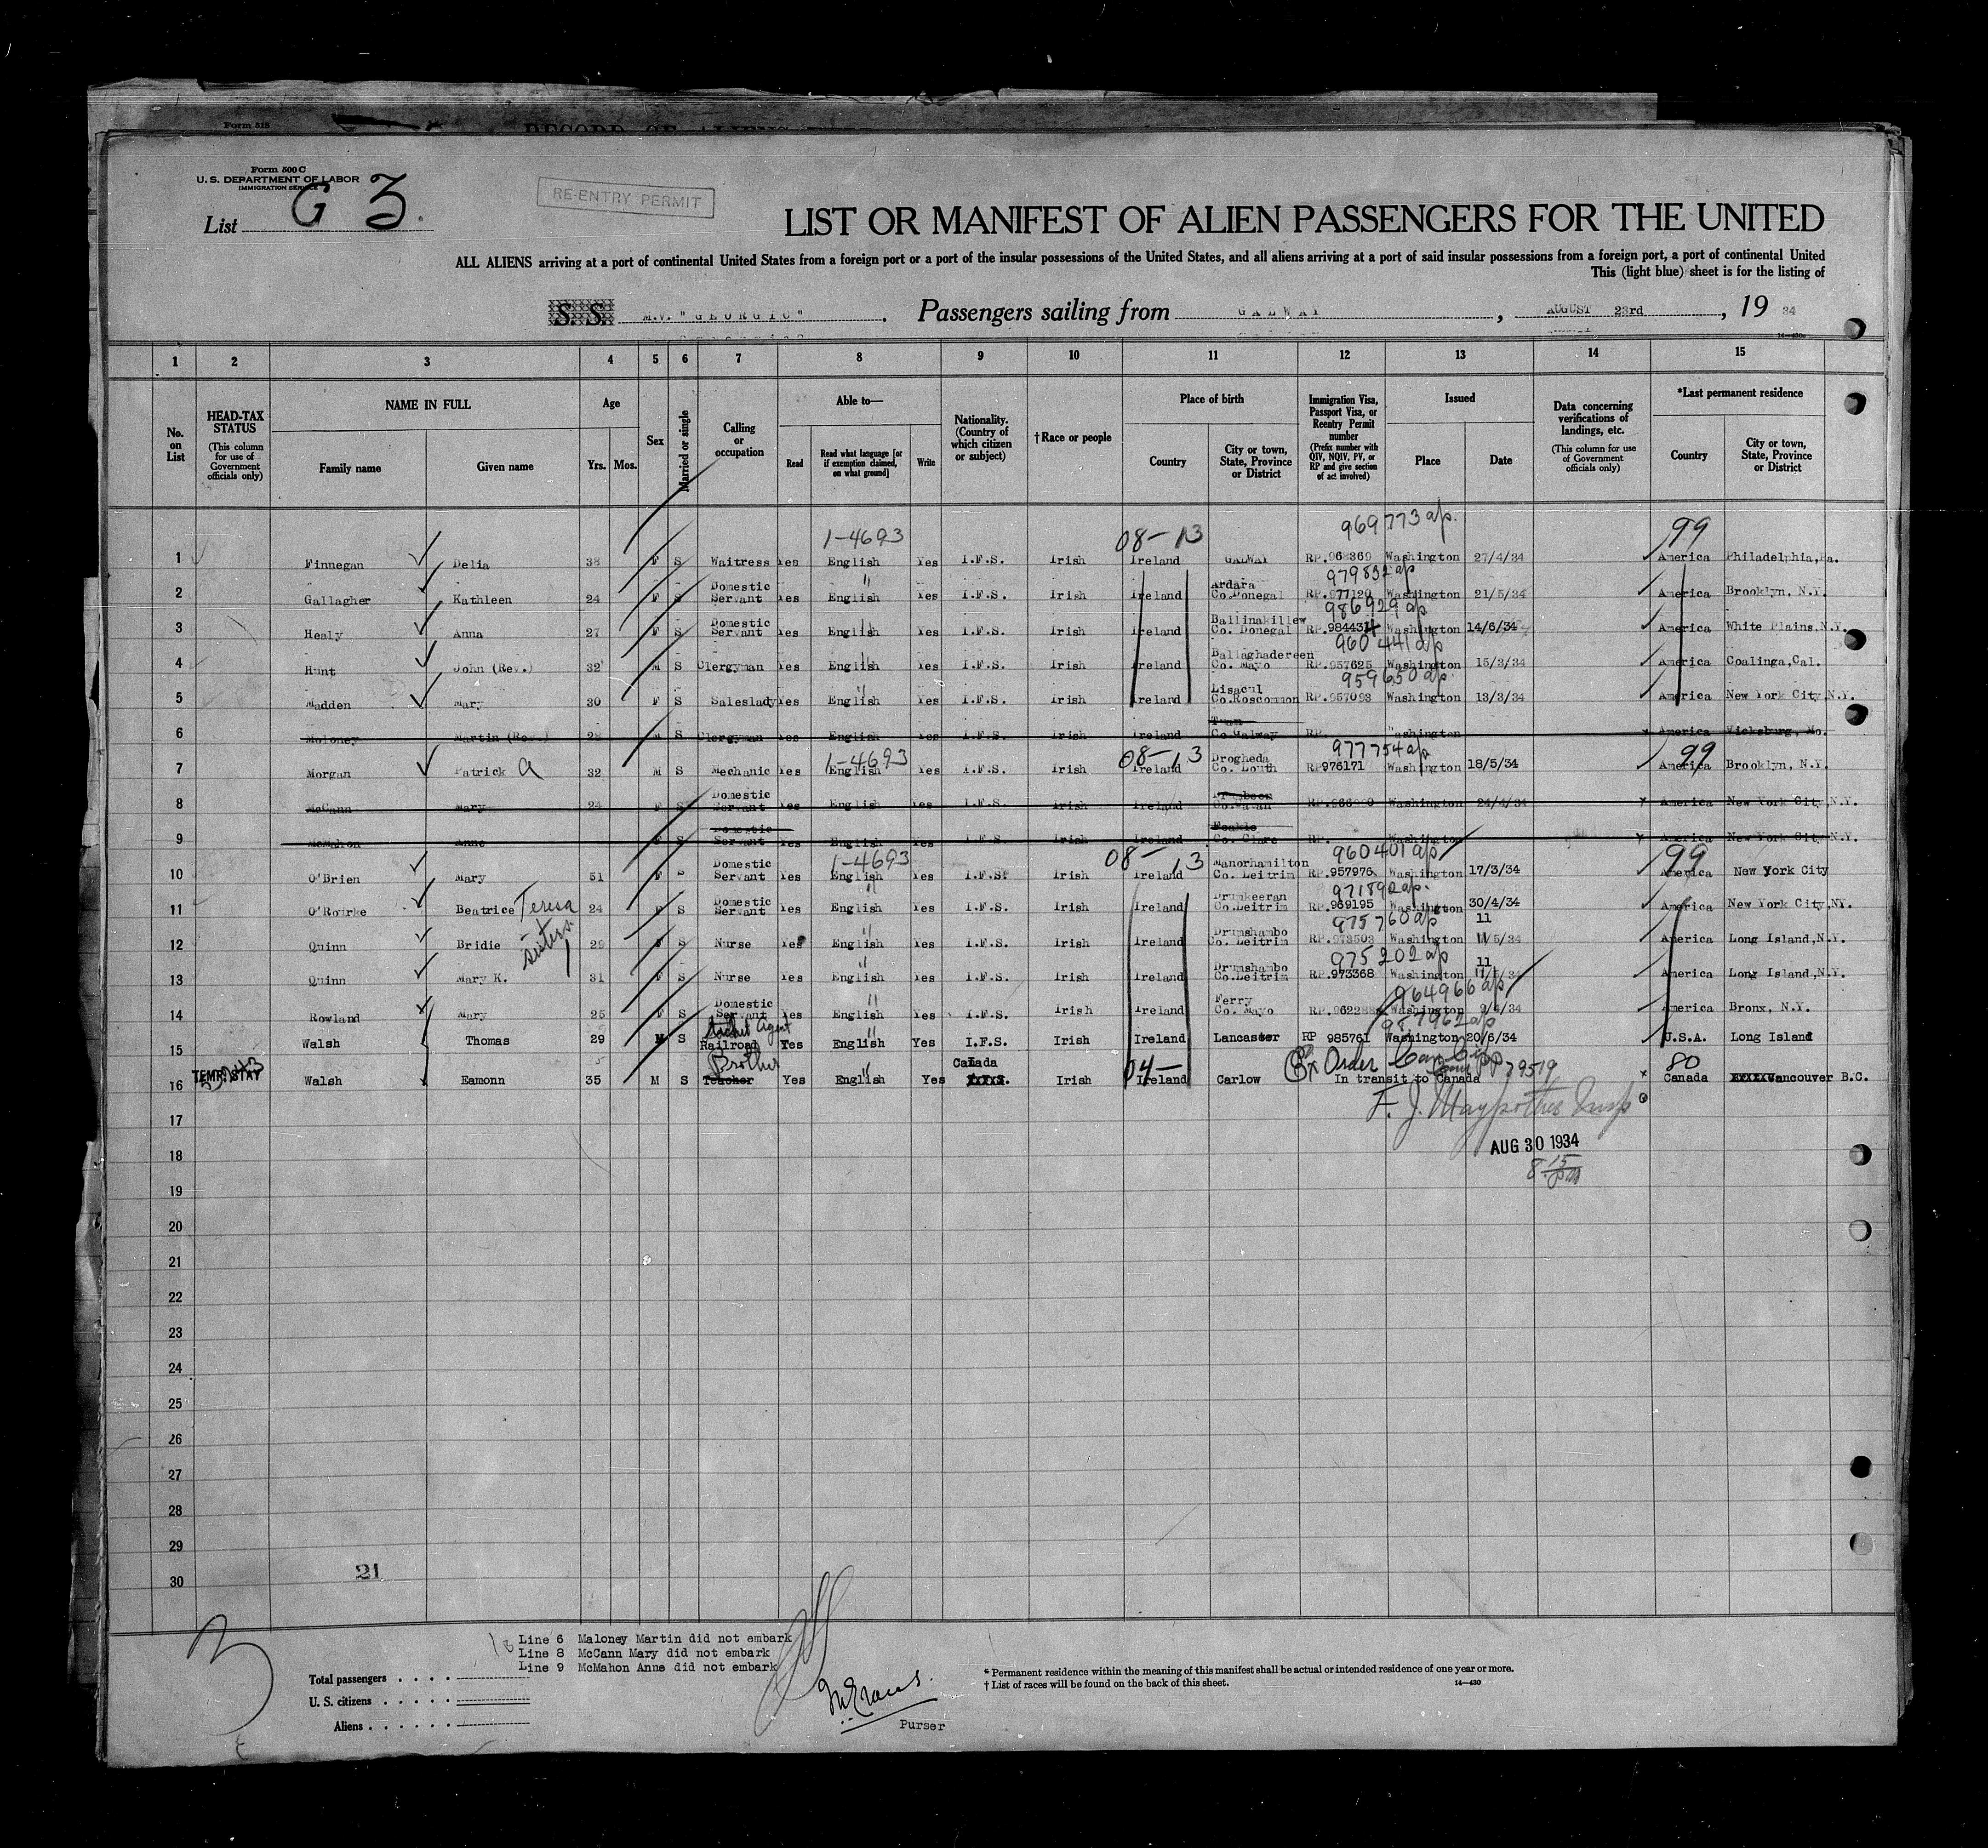 Form 518
RECORD OF ALIENS
Form 500 C
U. S. DEPARTMENT OF LABOR
IMMIGRATION SERVICE
List G 3.
RE-ENTRY PERMIT
LIST OR MANIFEST OF ALIEN PASSENGERS FOR THE UNITED
ALL ALIENS arriving at a port of continental United States from a foreign port or a port of the insular possessions of the United States, and all aliens arriving at a port of said insular possessions from a foreign port, a port of continental United
This (light blue) sheet is for the listing of
S. S. M.V. "GEORGIC". Passengers sailing from GALWAY, AUGUST 23rd, 19 34
14—430
1 2 3 4 5 6 7 8 9 10 11 12 13 14 15
No. on List
HEAD-TAX STATUS (This column for use of Government officials only)
NAME IN FULL Family name Given name
Age Yrs. Mos.
Sex
Married or single
Calling or occupation
Able to— Read Read what language [or if exemption claimed, on what ground] Write
Nationality. (Country of which citizen or subject)
†Race or people
Place of birth Country City or town, State, Province or District
Immigration Visa, Passport Visa, or Reentry Permit number (Prefix number with QIV, NQIV, PV, or RP and give section of act involved)
Issued Place Date
Data concerning verifications of landings, etc. (This column for use of Government officials only)
*Last permanent residence Country City or town, State, Province or District
1-4693 08-13 969773 a/p. 99
1 Finnegan Delia 38 F S Waitress Yes English Yes I.F.S. Irish Ireland GALWAY RP.968369 Washington 27/4/34 America Philadelphia,Pa.
979832 a/p
2 Gallagher Kathleen 24 F S Domestic Servant Yes English Yes I.F.S. Irish Ireland Ardara Co.Donegal RP.977120 Washington 21/5/34 America Brooklyn, N.Y.
986929 a/p
3 Healy Anna 27 F S Domestic Servant Yes English Yes I.F.S. Irish Ireland Ballinakillew Co. Donegal RP.984434 Washington 14/6/34 America White Plains,N.Y.
960441 a/p
4 Hunt John (Rev.) 32 M S Clergyman Yes English Yes I.F.S. Irish Ireland Ballaghadereen Co. Mayo RP.957625 Washington 15/3/34 America Coalinga,Cal.
959650 a/p.
5 Madden Mary 30 F S Saleslady Yes English Yes I.F.S. Irish Ireland Lisacul Co.Roscommon RP.957093 Washington 13/3/34 America New York City,N.Y.
6 Moloney Martin (Rev.) 28 M S Clergyman Yes English Yes I.F.S. Irish Ireland Tuam Co.Galway RP. Washington America Vicksburg, Mo.
1-4693 08-13 977754 a/p 99
7 Morgan Patrick A 32 M S Mechanic Yes English Yes I.F.S. Irish Ireland Drogheda Co. Louth RP976171 Washington 18/5/34 America Brooklyn, N.Y.
8 McCann Mary 24 F S Domestic Servant Yes English Yes I.F.S. Irish Ireland Co.Cavan Washington 24/4/34 America New York City,N.Y.
9 McMahon Anne F S Domestic Servant Yes English Yes I.F.S Irish Ireland Feakle Co. Clare RP. Washington America New York City N.Y.
1-4693 08-13 960401 a/p 99
10 O'Brien Mary 51 F S Domestic Servant Yes English Yes I.F.S. Irish Ireland Manorhamilton Co. Leitrim RP.957976 Washington 17/3/34 America New York City
971892 a/p.
11 O'Rourke Beatrice Teresa 24 F S Domestic Servant Yes English Yes I.F.S. Irish Ireland Drumkeeran Co.Leitrim RP.969195 Washington 30/4/34 America New York City,NY.
975760 a/p 11
12 Quinn Bridie sisters 29 F S Nurse Yes English Yes I.F.S. Irish Ireland Drumshambo Co. Leitrim RP.973503 Washington 11/5/34 America Long Island,N.Y.
975202 a/p 11
13 Quinn Mary K. 31 F S Nurse Yes English Yes I.F.S. Irish Ireland Drumshambo Co.Leitrim RP.973368 Washington 11/5/34 America Long Island,N.Y.
964966 a/p
14 Rowland Mary 25 F S Domestic Servant Yes English Yes I.F.S. Irish Ireland Ferry Co. Mayo Washington America Bronx, N.Y.
987962 a/p
15 Walsh Thomas 29 M S ticket Agent Railroad Yes English Yes I.F.S. Irish Ireland Lancaster RP 985761 Washington 20/6/34 U.S.A. Long Island
TEMP. STAY Brother Canada 04- 80
16 Walsh Eamonn 35 M S Teacher Yes English Yes Irish Ireland Carlow In transit to Canada PP 79519 Canada Vancouver B.C.
17
18 AUG 30 1934
19
20
21
22
23
24
25
26
27
28
29
30
21
3
Line 6 Maloney Martin did not embark
Line 8 McCann Mary did not embark
Line 9 McMahon Anne did not embark
Total passengers
U. S. citizens
Aliens
Purser
* Permanent residence within the meaning of this manifest shall be actual or intended residence of one year or more.
† List of races will be found on the back of this sheet.
14—430